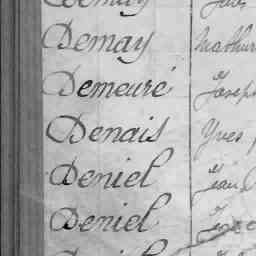 Demay Mathur
Demeuré Joseph
Denais Yves
Deniel Jean
Deniel